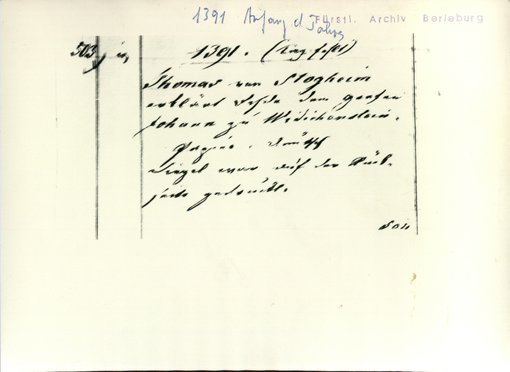 1391 Anfang d Jahres
Fürstl. Archiv Berleburg
503
1391. (Tag fehlt)
Thomas von Stogheim
erklärt Fehde dem Grafen
Johann zu Widichenstein.
Papier. Deutsch
Siegel war auf der Rück-
seite gedrückt.